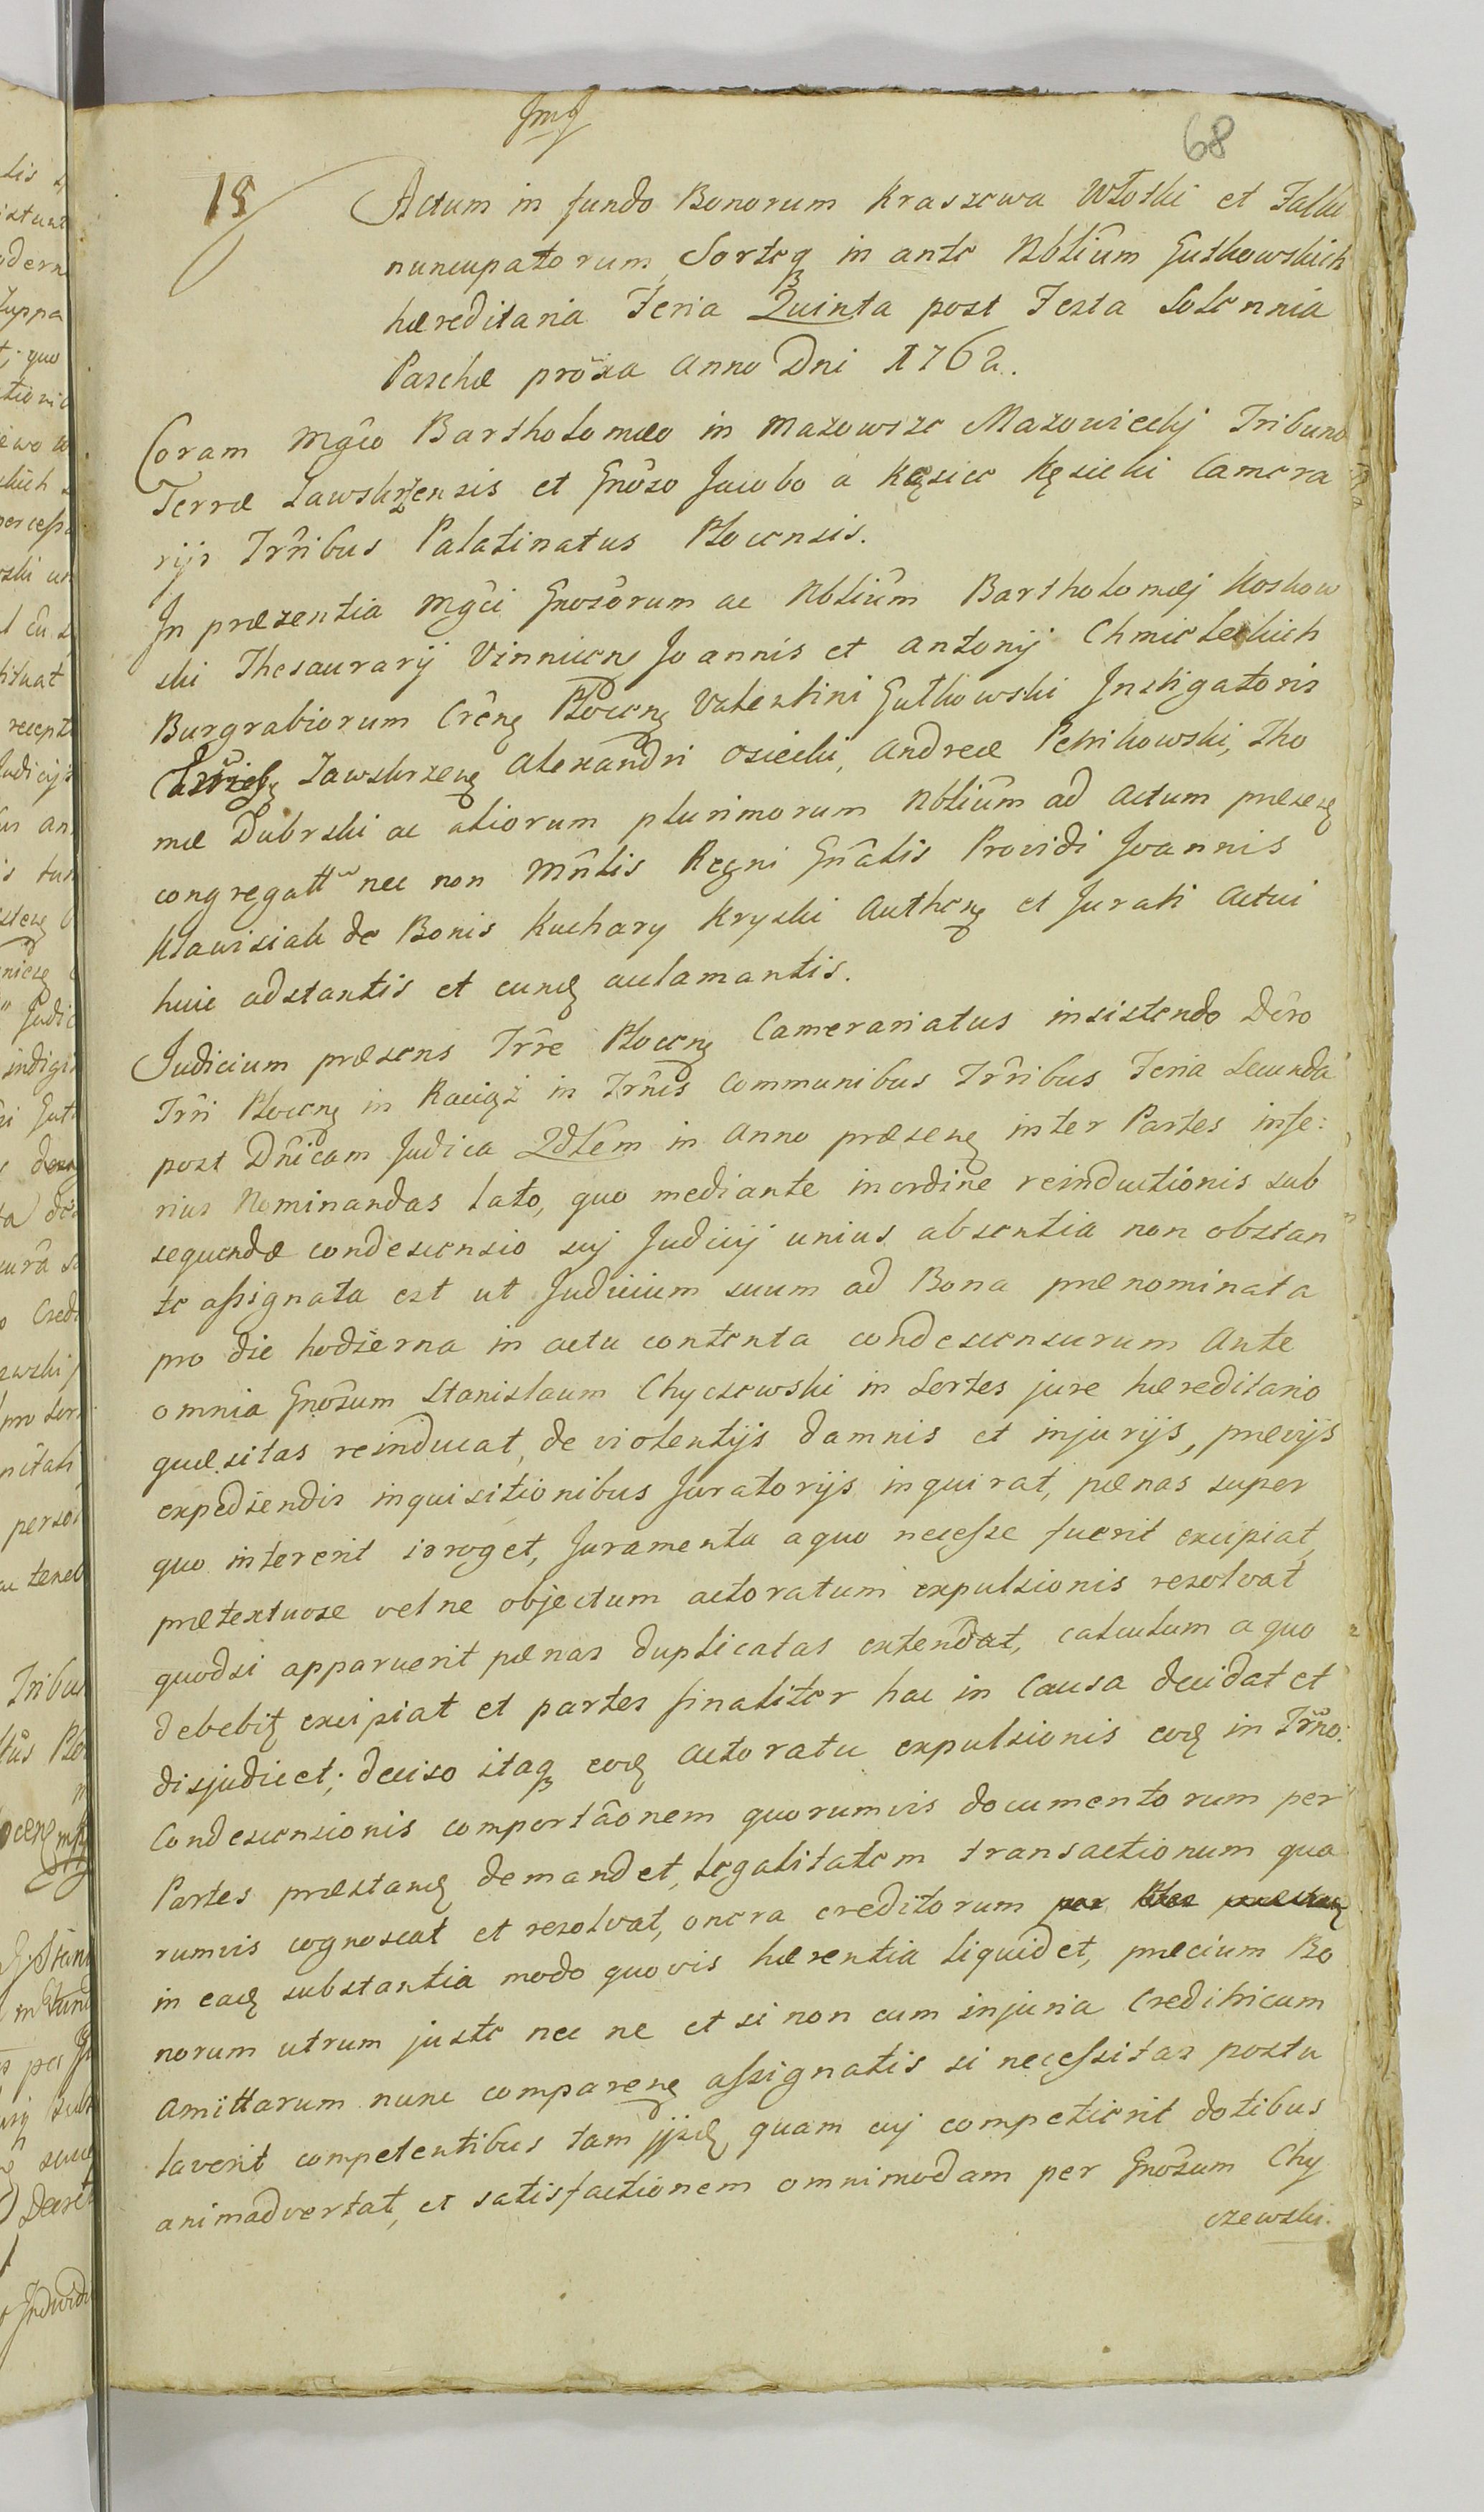 68
18
Actum in fundo Bonorum Kraszewa Włoski et Falki
nuncupatorum, Sorteq in ante Nbliûm Gutkowskich
hæreditaria Feria Quinta post Festa Solennia
Paschæ proxa Anno Dni 1762.
Coram Mgco Bartholomæo in Mazowsze Mazowiecki Tribuno
Terræ Zawskrzensis et Gnôso Jacobo à Kęsice Kęsicki Camera
rijs Trribus Palatinatus Plocensis.
In præsentia Mgci Gnosôrum ac Nbliûm Bartholomæj Koskow
ski Thesaurarij Vinnicen Joannis et Antonij Chmieleckich
Burgrabiorum Cren Plocen Valentini Gutkowski Instigatoris
Zawskrzen Alexandri Osiecki, Andreæ Petrikowski, Tho
mæ Dubrski ac aliorum plurimorum Nbliûm ad Actum præsen
congregatt nec non Mnlis Regni Gnâlis Providi Joannis
Klawisiak de Bonis Kuchary Kryski Authen et Jurati Actui
huic adstantis et eund acclamantis.
Judicium præsens Trre Plocen Camerariatus insistendo Dcro
Trri Plocen in Raciąż in Trnis Communibus Trribus Feria Secunda
post Dnicam Judica Qdlem in Anno præsen inter Partes infe:
rius Nominandas lato, quo mediante in ordine reinductionis sub
sequendæ condescensio suj Judicij unius absentia non obstan
te assignata est ut Judicium suum ad Bona prænominata
pro die hodierna in actu contenta condescensurum Ante
omnia Gnosum Stanislaum Chyczewski in Sortes jure hæreditario
quæsitas reinducat, de violentijs damnis et injurijs, prævijs
expediendis inquisitionibus Juratorijs inquirat, pænas super
quo intererit irroget, Juramenta a quo necesse fuerit excipiat,
prætextuose vel ne objectum actoratum expulsionis resolvat
quodsi apparuerit pænas duplicatas extendat, calculum a quo
debebit excipiat et partes finaliter hac in Causa decidat et
disjudicet; deciso itaq eod actoratu expulsionis eod in Trno:
Condescensionis comportâonem quorumvis documentorum per
Partes præstand demandet, legalitatem transactionum quo
rumvis cognoscat et resolvat, onera creditorum
in ead substantia modo quovis hærentia liquidet, præcium Bo
norum utrum juste nec ne et si non cum injuria Creditricum
Amittarum nunc comparen assignatis si necessitas postu
laverit competentibus tam jjsd quam cuj competierit dotibus
animadvertat, et satisfactionem omnimodam per Gnosum Chy
czewski.